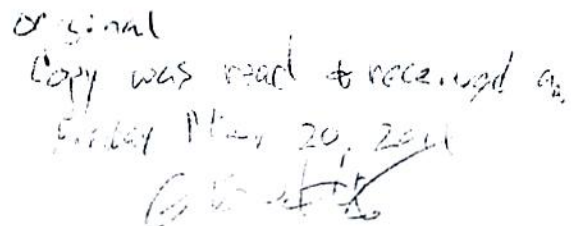 original
Copy was read & received on
Friday May 20, 2011